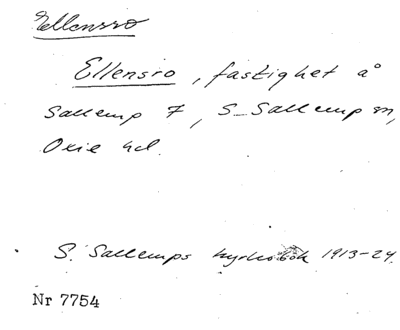 Ellensro
Ellensro, fastighet å
Sallerup 7, S. Sallerup sn,
Oxie hd.
S. Sallerups kyrkobok 1913-24.
Nr 7754